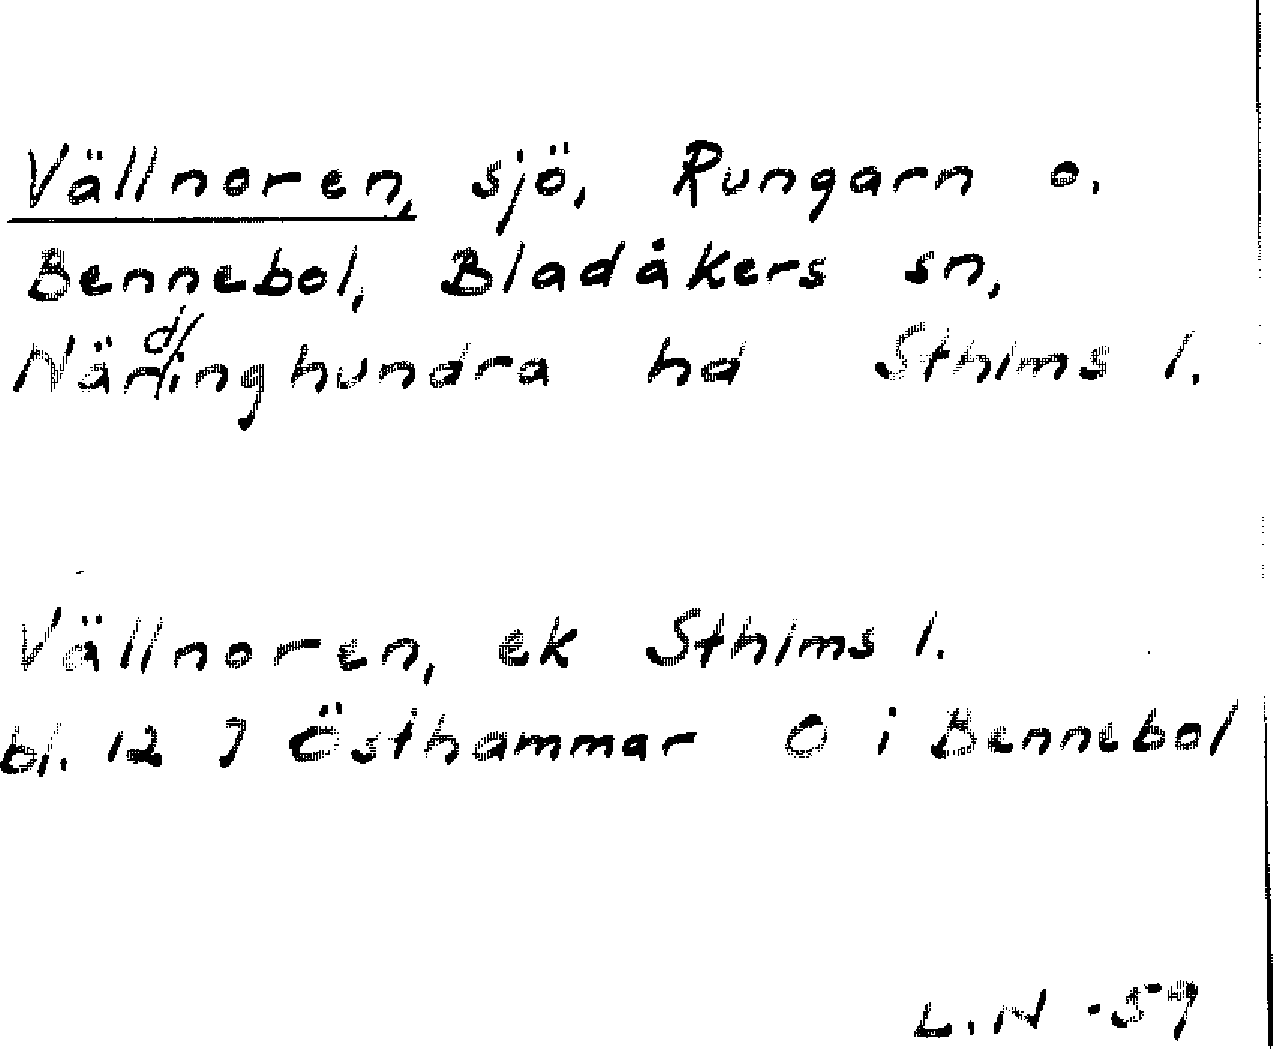 Vällnoren, sjö, Rungarn o.
Bennebol, Bladåkers sn,
Närdinghundra hd Sthlms l.
Vällnoren, ek Sthlms l.
bl. 12 J Östhammar Ö i Bennebol
L.N -59